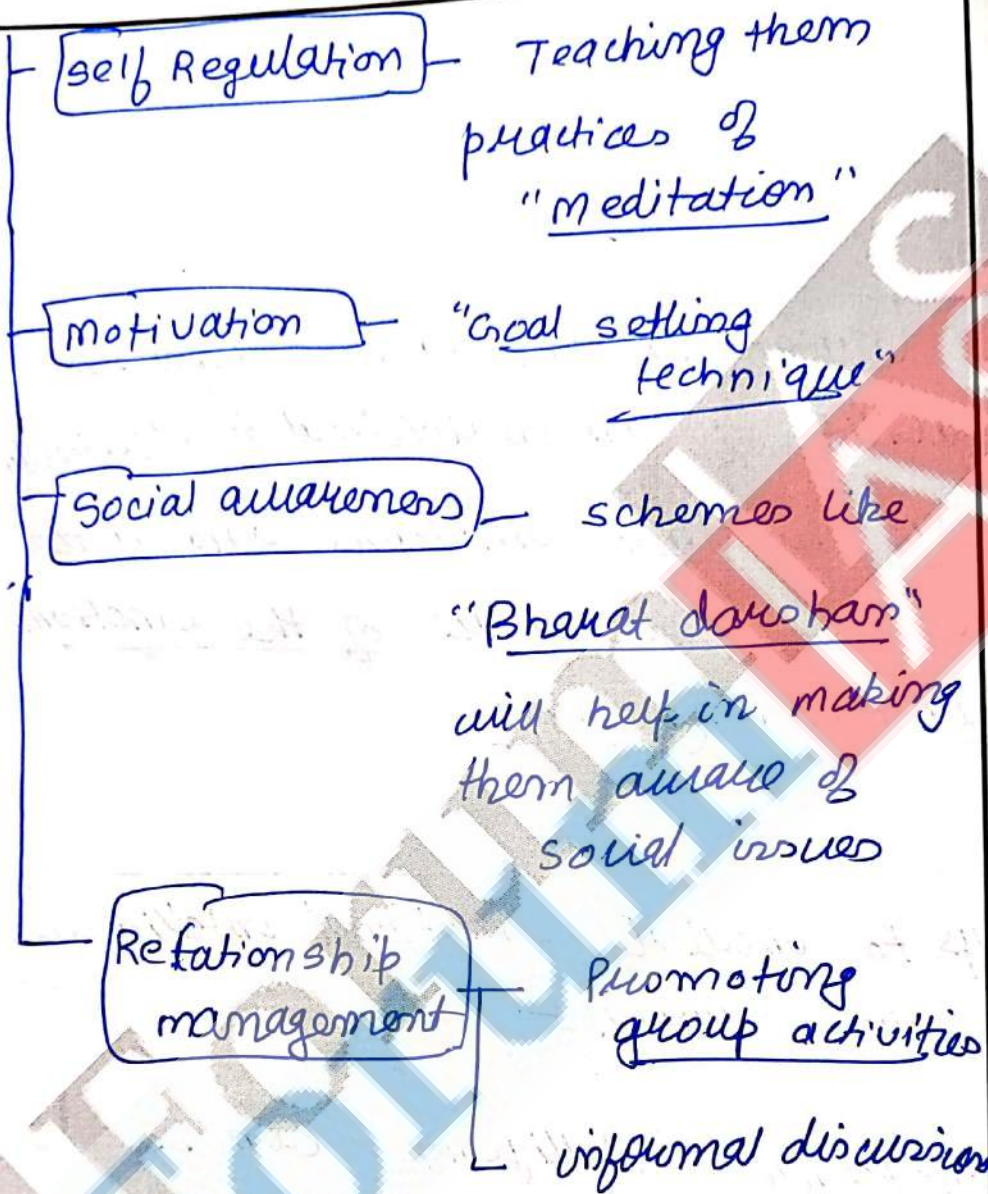 Self Regulation - Teaching them
practices of
"meditation"
Motivation - "Goal setting
technique"
Social awareness - schemes like
"Bharat darshan"
will help in making
them aware of
social issues
Relationship
management - Promoting
group activities
informal discussions
ForumIAS